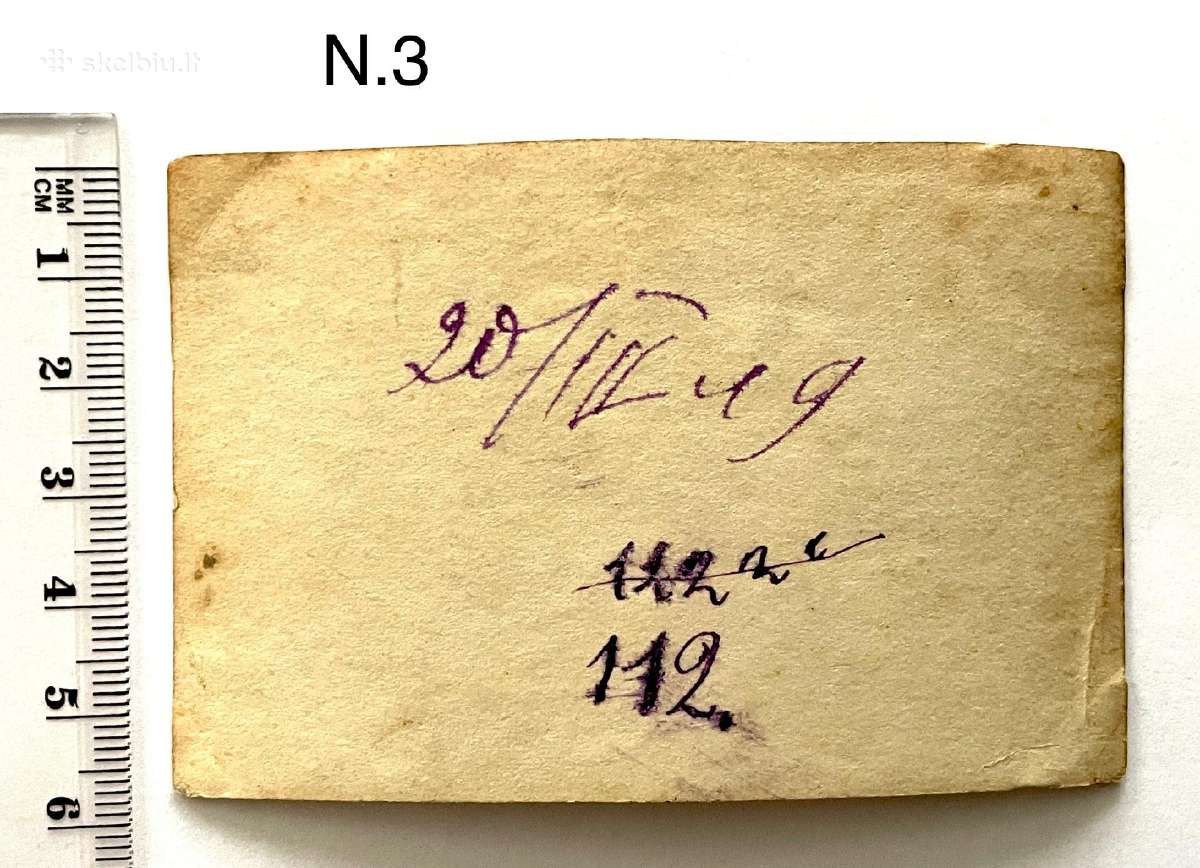 skelbiu.lt
N.3
MM
CM
1
2
3
4
5
6
20/III 49
112
112.